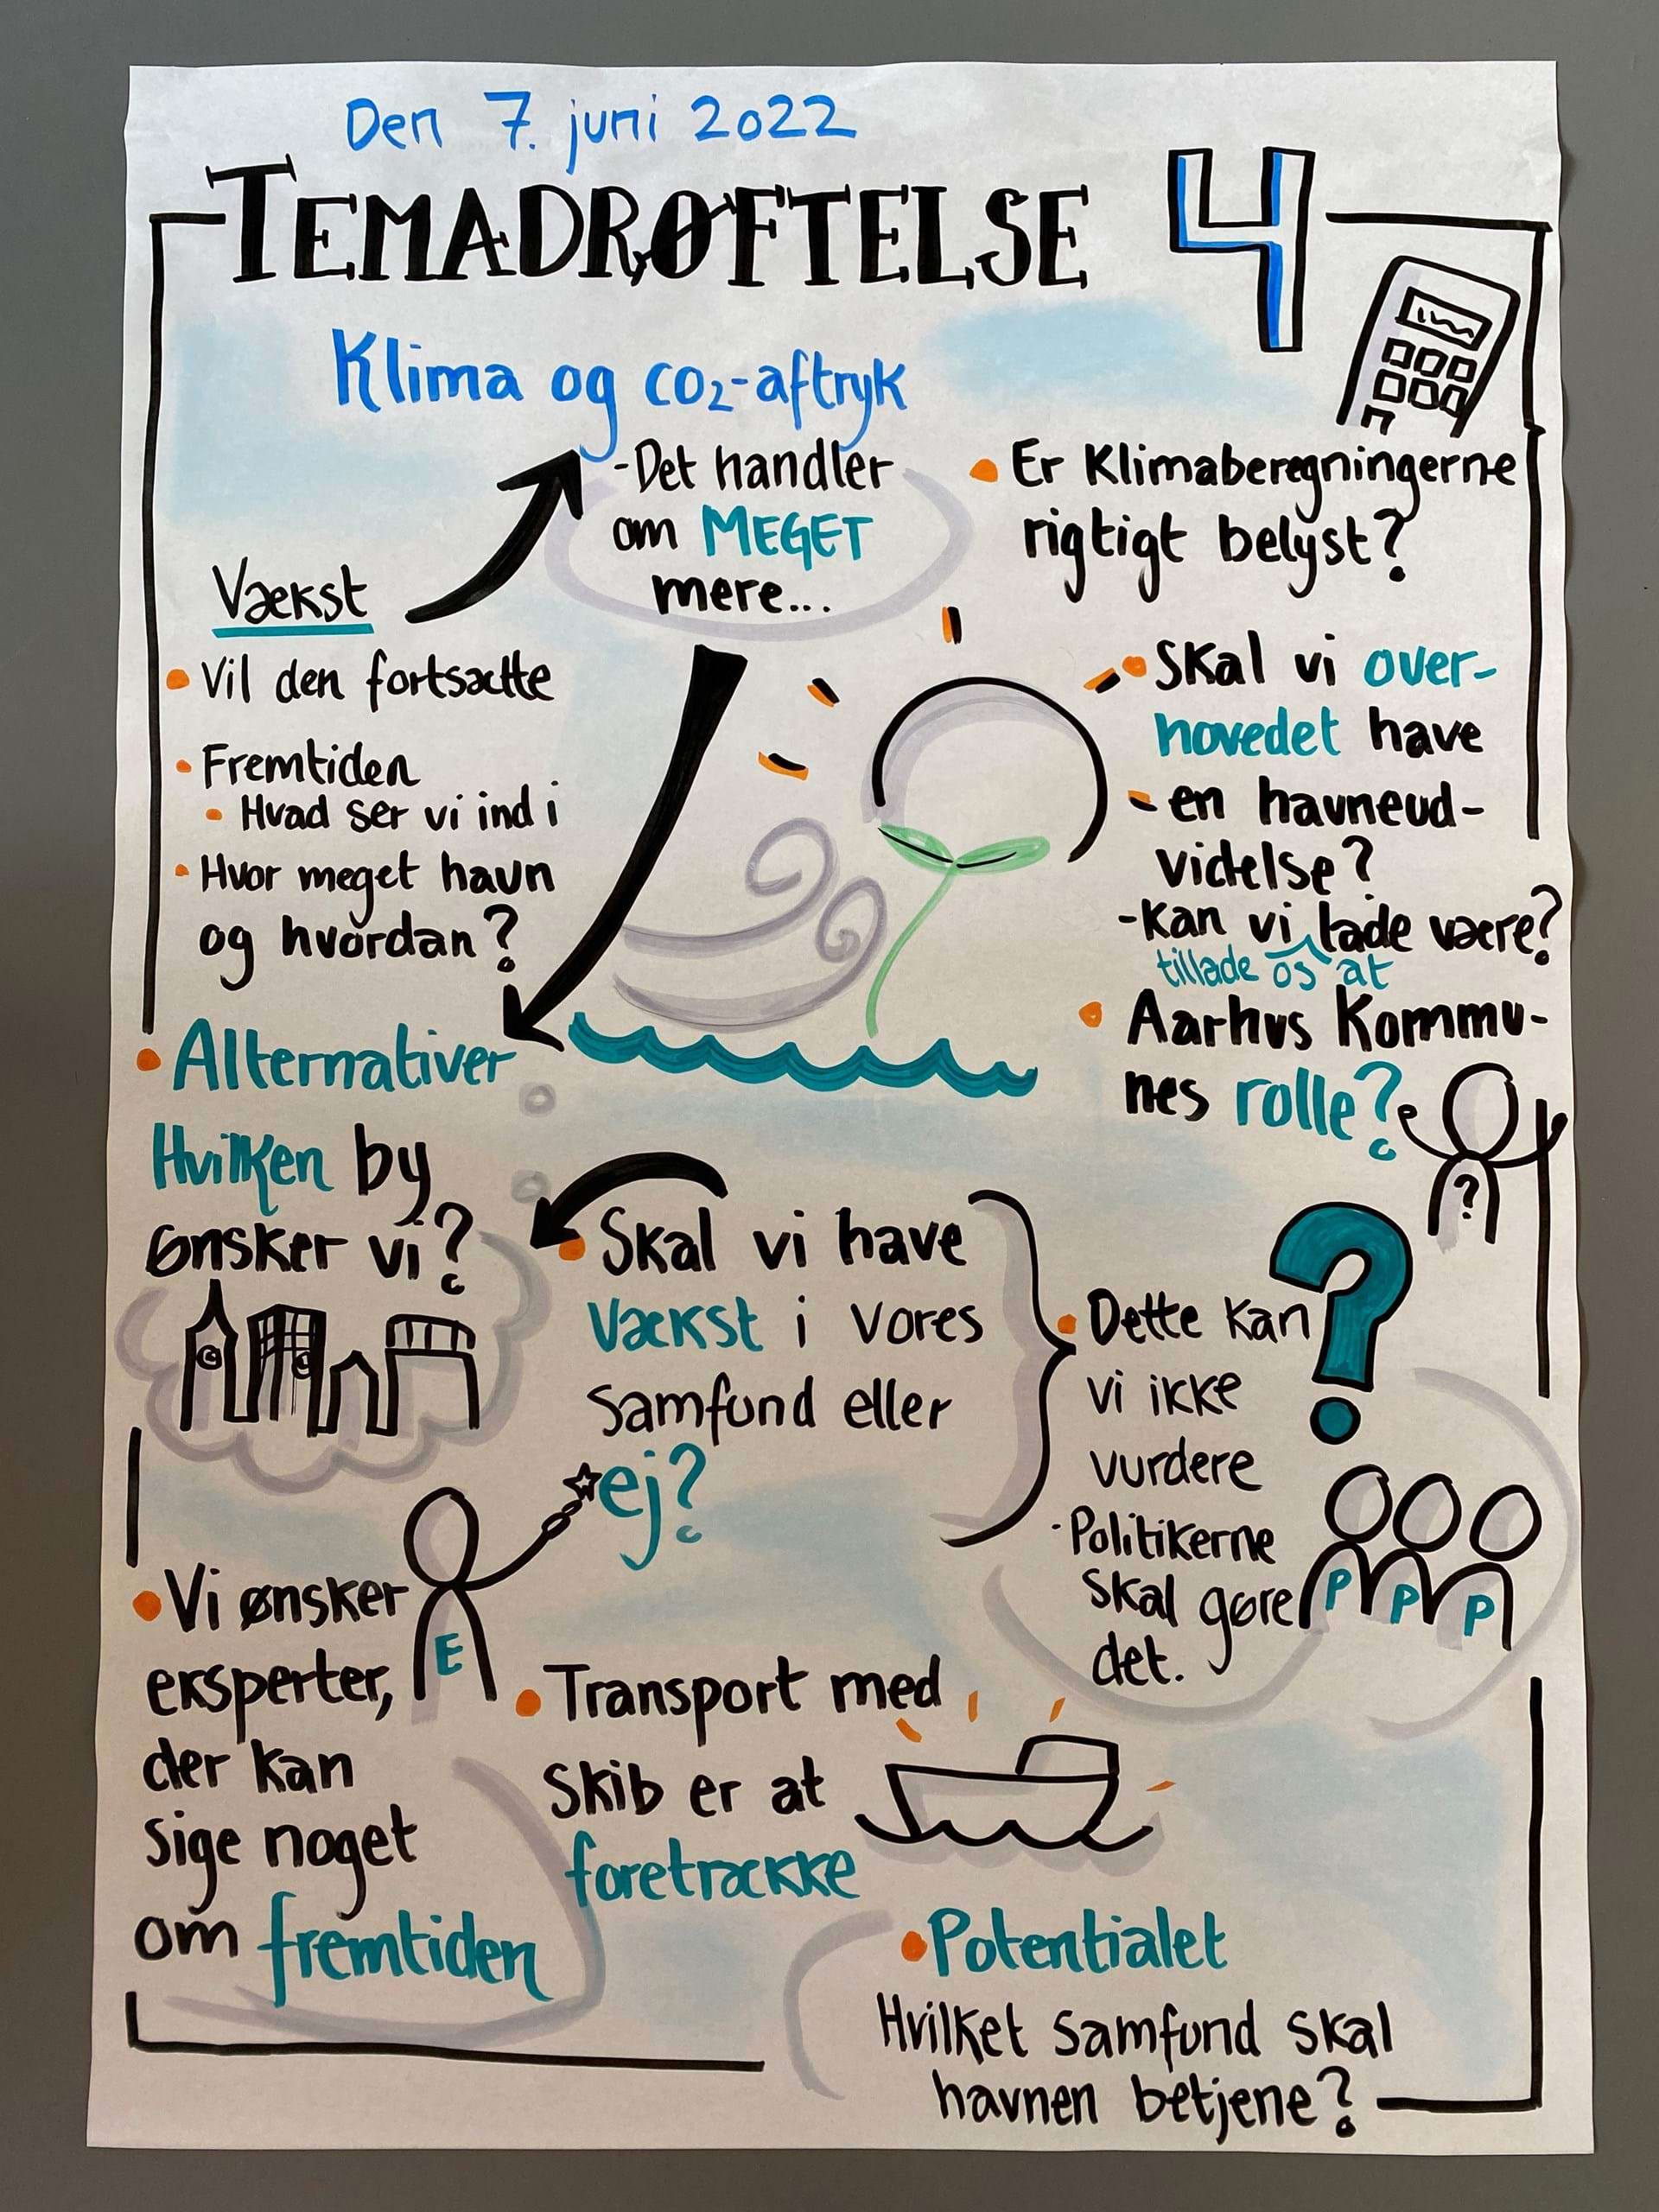 Den 7. juni 2022
TEMADRØFTELSE 4
Klima og CO2-aftryk
-Det handler
om MEGET
mere...
Vækst
• Vil den fortsætte
• Fremtiden
• Hvad ser vi ind i
• Hvor meget havn
og hvordan?
• Er Klimaberegningerne
rigtigt belyst?
• Skal vi over-
hovedet have
en havneud-
videlse?
-Kan vi lade være?
tillade os at
• Aarhus Kommu-
nes rolle?
?
• Alternativer
Hvilken by
ønsker vi?
• Skal vi have
Vækst i vores
samfund eller
ej?
• Dette kan
vi ikke
vurdere
?
· Politikerne
skal gøre
det.
P P P
• Vi ønsker
eksperter,
der kan
sige noget
om fremtiden
E
• Transport med
skib er at
foretrække
• Potentialet
Hvilket samfund skal
havnen betjene?